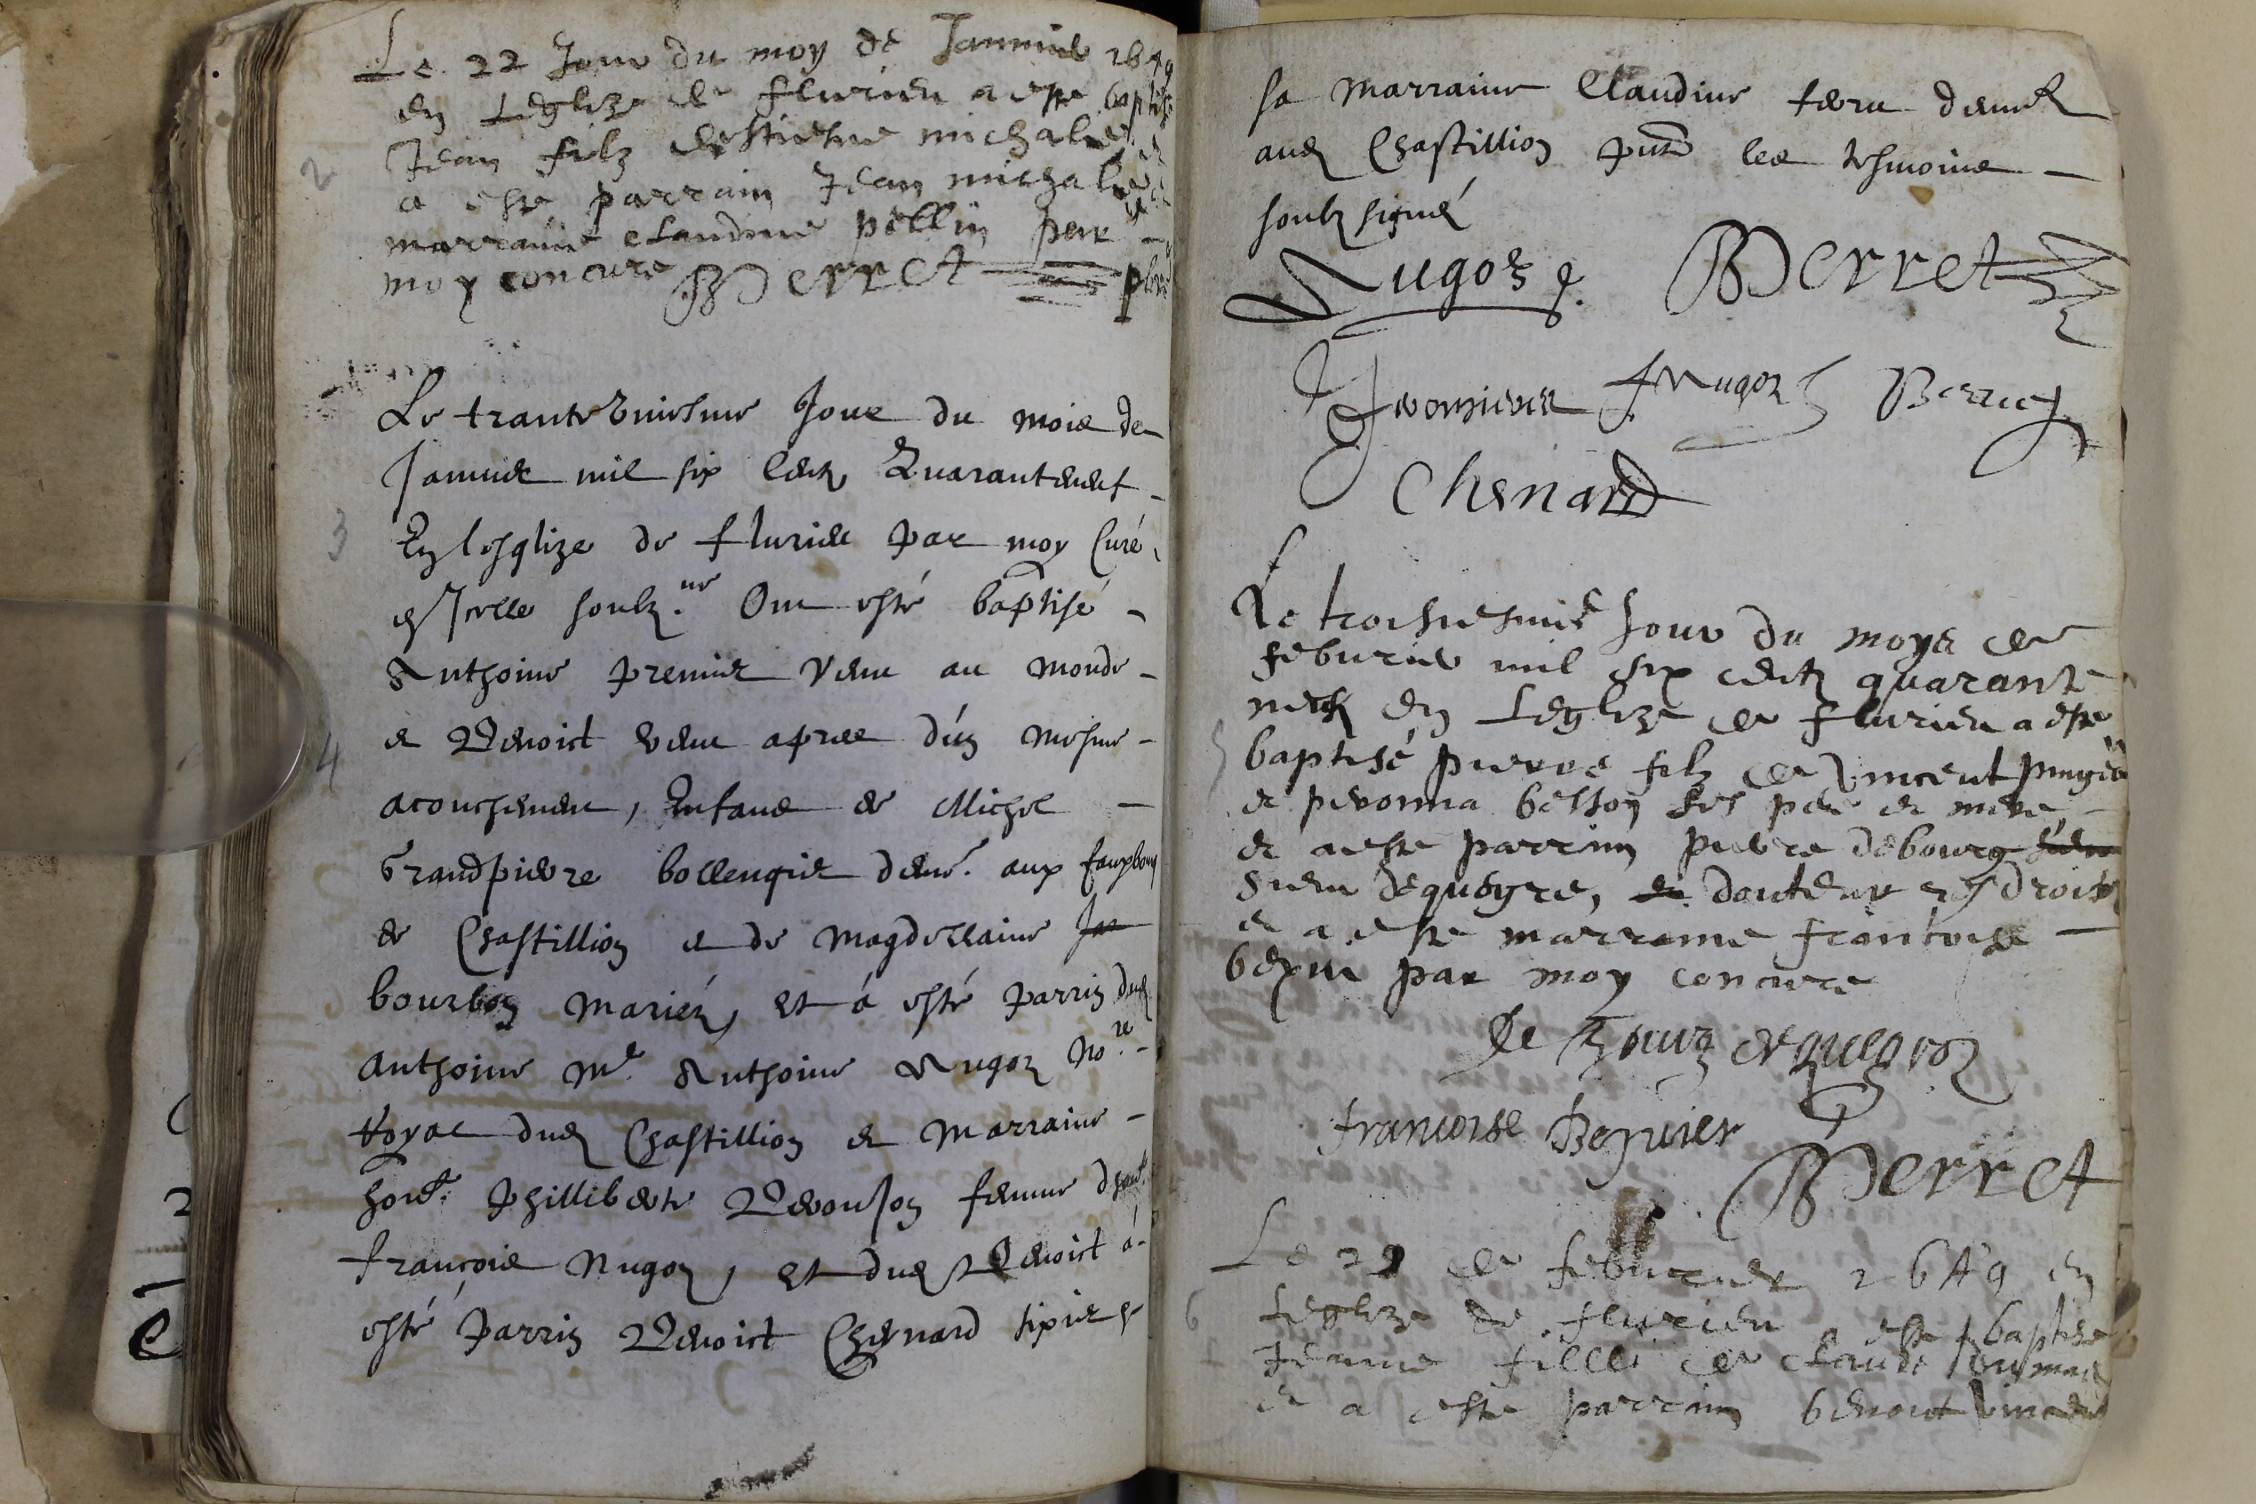 Le 22 Jour du moy de Jannuie 1649
en Leglize de flurieu a este baptise
2
Jean filz destiesne michalie
a este parrain Jean michalie
marraine claudine pellin par
moy concure BDerret
Le trante uniesme Jour du mois de
Januier mil six Centz Quarantneuf
3
En lesglize de flurieu par moy Curé
d'Jcelle soubz.né Ont esté baptisé
Anthoine premier venu au monde
4
et Benoict venu apres d'un mesme
acouchement, Enfans de Michel
Grandpierre bollengier demt. aux fauxbourg
de Chastillion et de Magdellaine Jac
bourbon Mariéz, et á esté parrin dud
anthoine Me. Anthoine Nugoz No.re
Royal dud Chastillion et Marraine
hon.e philliberte Bevonson femme
françois Nugoz, et dud Benoict á
esté parrin Benoict Chynard tixier et
sa Marraine Claudine demt
aud Chastillion pnts les tesmoins
soubz signé
Nugoz BDerret
Nugoz
Chenard
Le troisiesme Jour du moys de
feburier mil six centz quarant
neuf en Leglize de flurieu a este
5
baptisé pierre filz de Vincent
et pernonna besson ses pere et mere
et a este parrin pierre debourg sieu
sieur dequeyre, et docteur es droitz
et a este marreine francoise
par moy concure
francoise
BDerret
Le 21 de feburier 1649 en
6
Leglize de flurieu a este baptise
Jeanne fille de claude
et a este parrain benoit